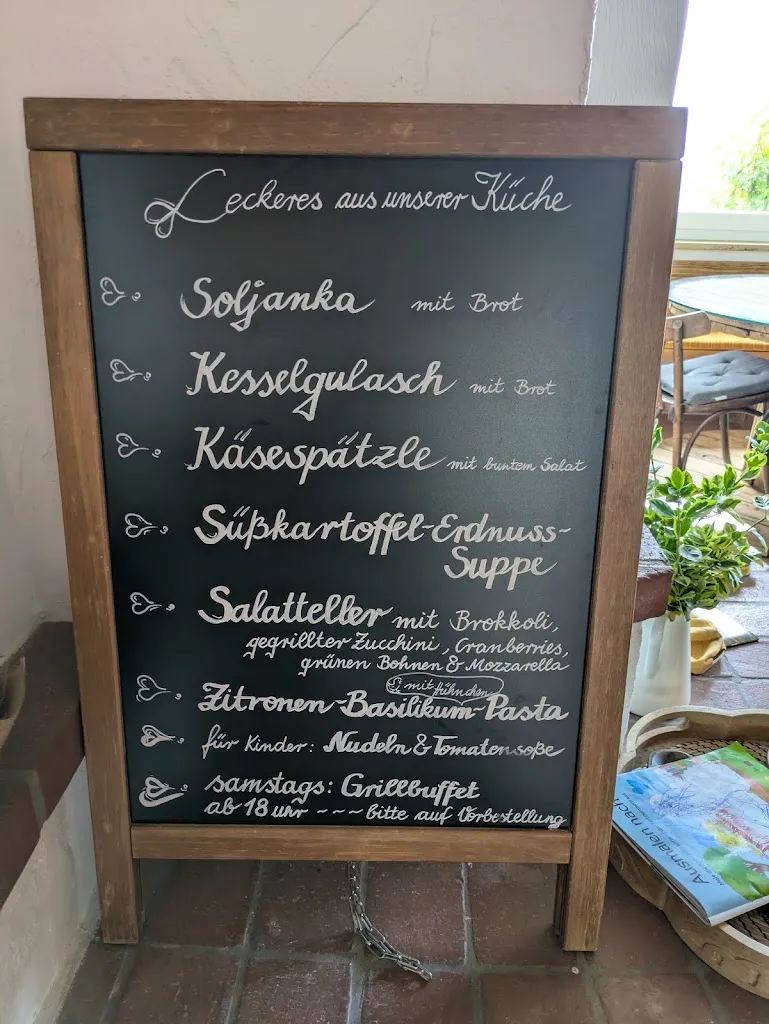 Leckeres aus unserer Küche
Soljanka mit Brot
Kesselgulasch mit Brot
Käsespätzle mit buntem Salat
Süßkartoffel-Erdnuss-
Suppe
Salatteller mit Brokkoli,
gegrillter Zucchini, Cranberries,
grünen Bohnen & Mozzarella
mit Hühnchen
Zitronen-Basilikum-Pasta
für Kinder: Nudeln & Tomatensoße
samstags: Grillbuffet
ab 18 uhr ~~~ bitte auf Vorbestellung
Ausmalen nach